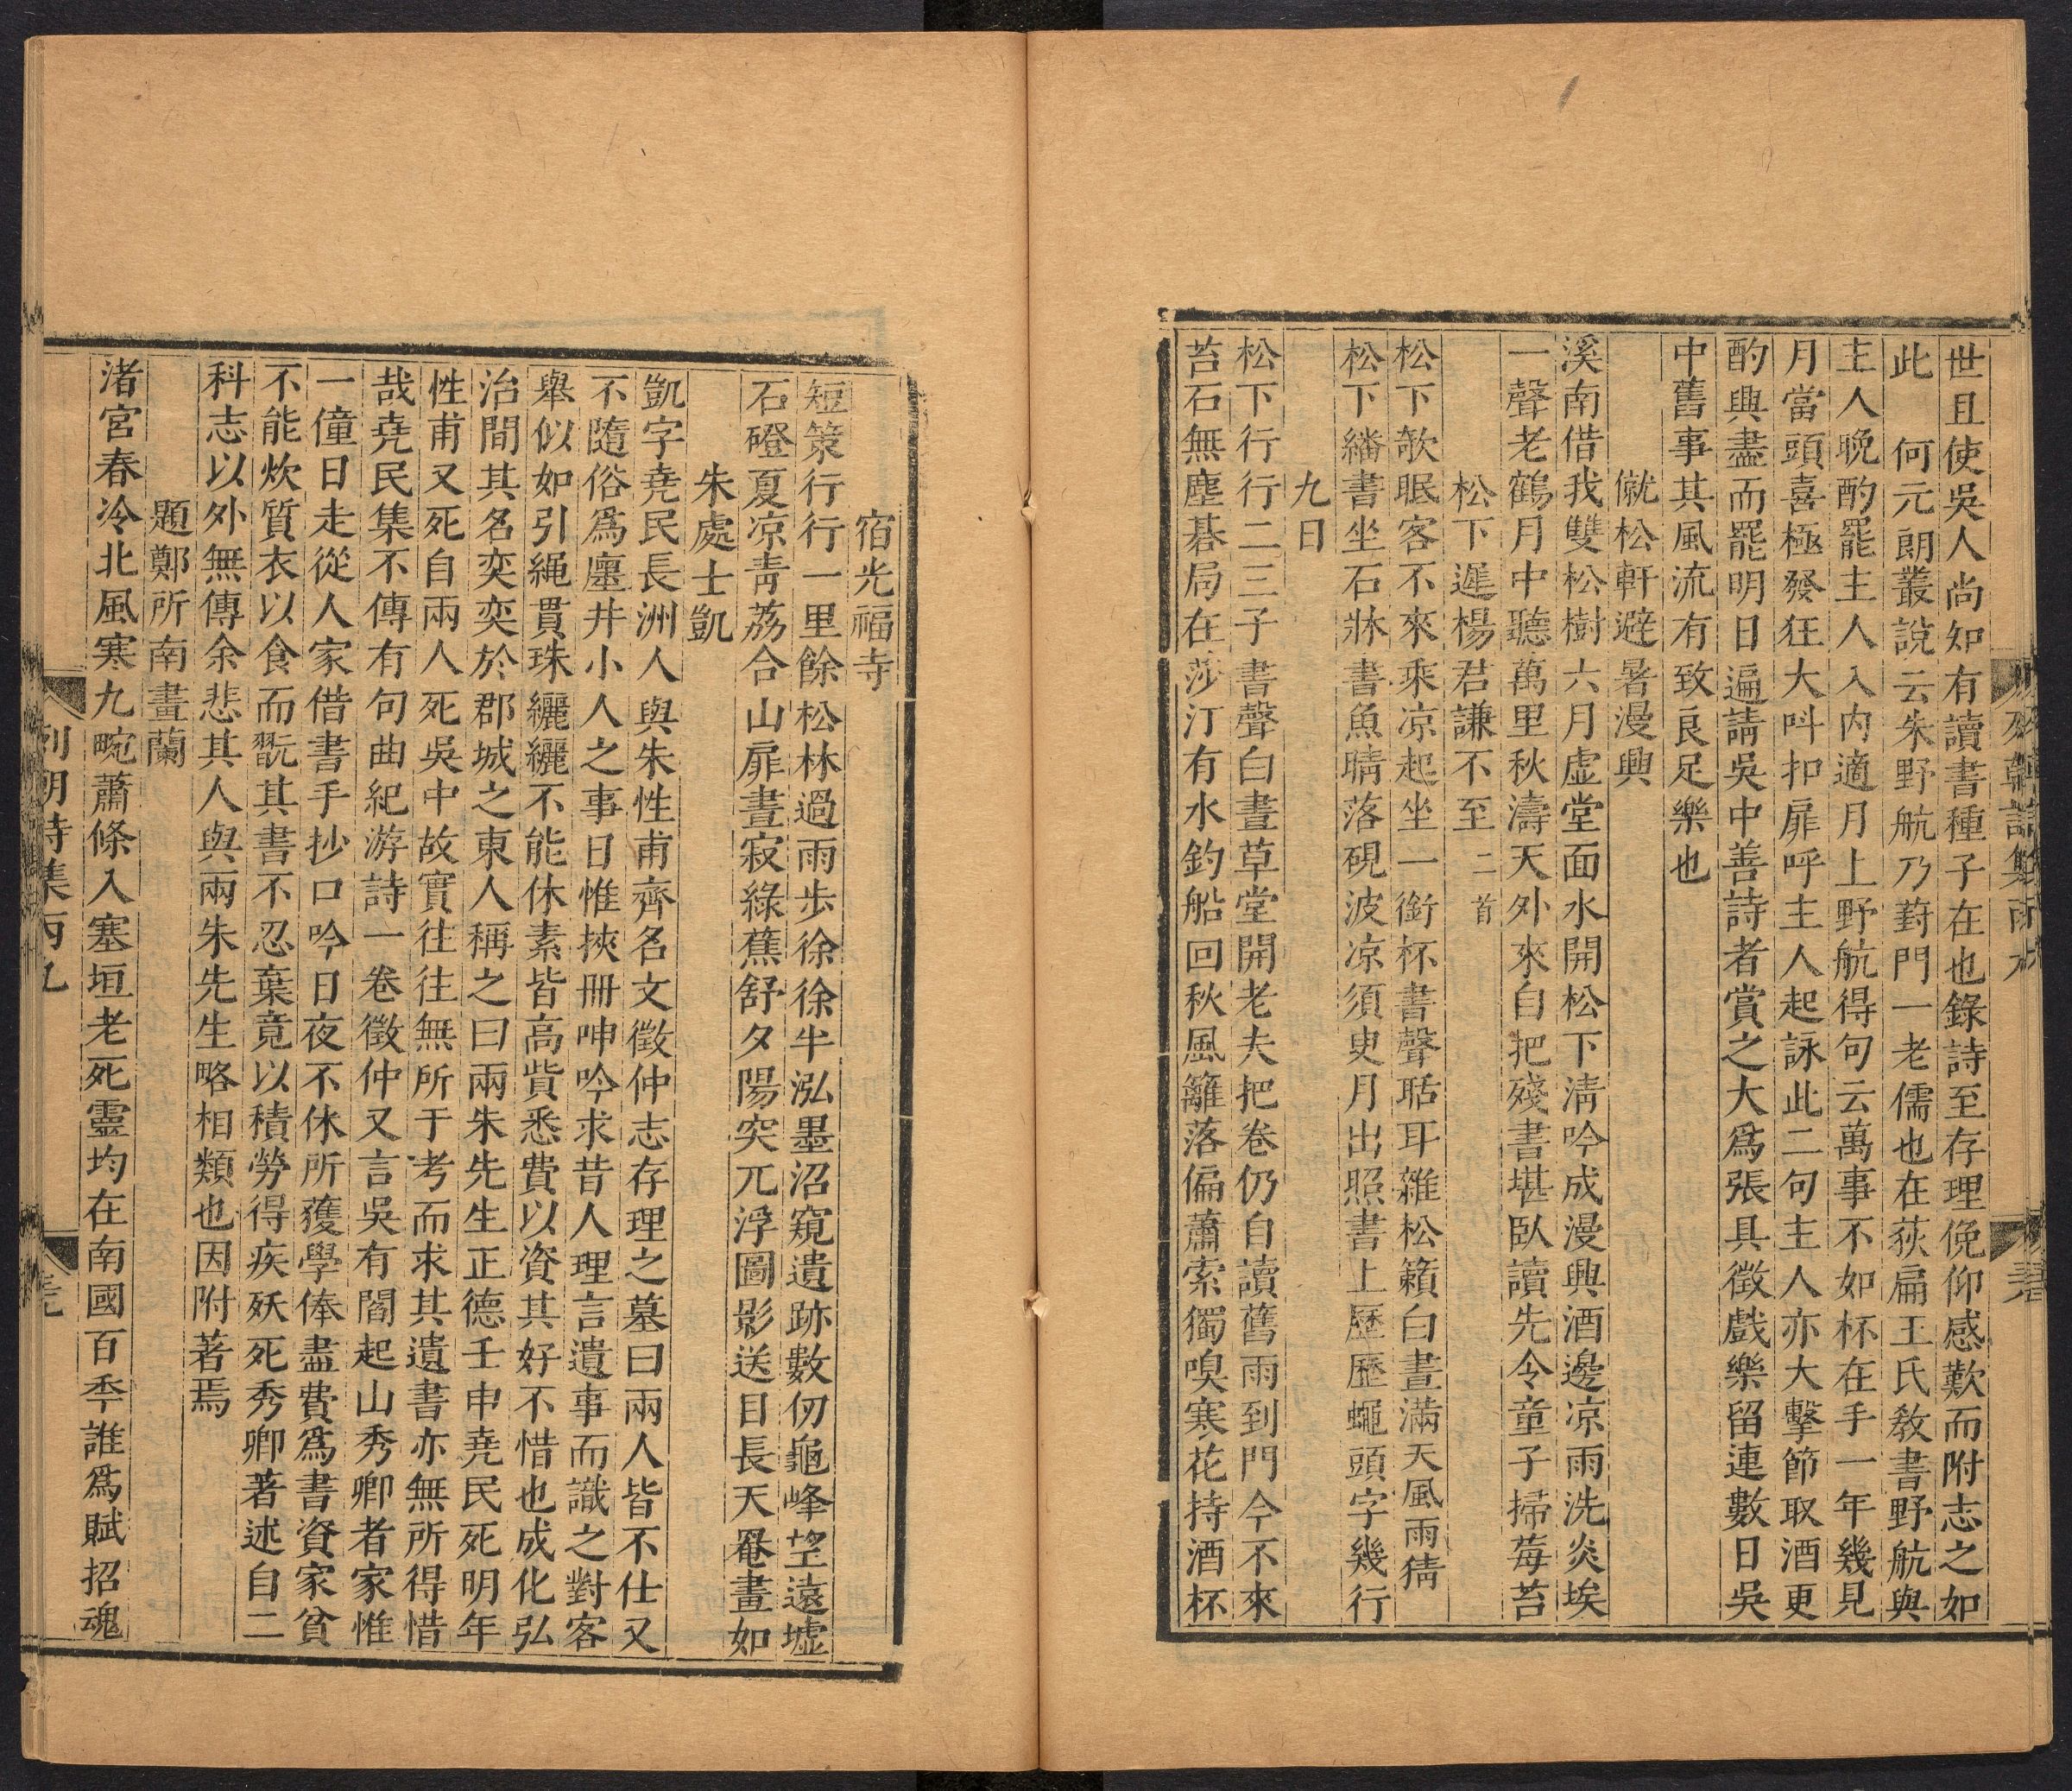 世且使吳人尚知有讀書種子在也錄詩至存理俛仰感歎而附志之如
此　何元朗叢說云朱野航乃葑門一老儒也在荻扁王氏敎書野航與
主人晚酌罷主人入内適月上野航得句云萬事不如杯在手一年幾見
月當頭喜極發狂大呌扣扉呼主人起詠此二句主人亦大擊節取酒更
酌興盡而罷明日遍請吳中善詩者賞之大爲張具徵戲樂留連數日吳
中舊事其風流有致良足樂也
僦松軒避暑漫興
溪南借我雙松樹六月虛堂面水開松下淸吟成漫興酒邊凉雨洗炎埃
一聲老鶴月中聽萬里秋濤天外來自把殘書堪臥讀先令童子掃莓苔
松下遲楊君謙不至二首
松下欹眠客不來乘凉起坐一銜杯書聲聒耳雜松籟白晝滿天風雨猜
松下繙書坐石牀書魚晴落硯波凉須臾月出照書上歷歷蠅頭字幾行
九日
松下行行二三子書聲白晝草堂開老夫把卷仍自讀舊雨到門今不來
苔石無塵碁局在莎汀有水釣船回秋風籬落偏蕭索獨嗅寒花持酒杯
宿光福寺
短策行行一里餘松林過雨步徐徐半泓墨沼窺遺跡數仞龜峰望遠墟
石磴夏凉靑荔合山扉晝寂綠蕉舒夕陽突兀浮圖影送目長天罨畫如
朱處士凱
凱字堯民長洲人與朱性甫齊名文徵仲志存理之墓曰兩人皆不仕又
不隨俗爲廛井小人之事日惟挾冊呻吟求昔人理言遺事而識之對客
舉似如引繩貫珠纚纚不能休素皆高貲悉費以資其好不惜也成化弘
治間其名奕奕於郡城之東人稱之曰兩朱先生正德壬申堯民死明年
性甫又死自兩人死吳中故實往往無所于考而求其遺書亦無所得惜
哉堯民集不傳有句曲紀游詩一卷徵仲又言吳有閻起山秀卿者家惟
一僮日走從人家借書手抄口吟日夜不休所獲學俸盡費爲書資家貧
不能炊質衣以食而翫其書不忍棄竟以積勞得疾殀死秀卿著述自二
科志以外無傳余悲其人與兩朱先生略相類也因附著焉
題鄭所南畫蘭
渚宮春冷北風寒九畹蕭條入塞垣老死靈均在南國百秊誰爲賦招魂
列朝詩集丙九